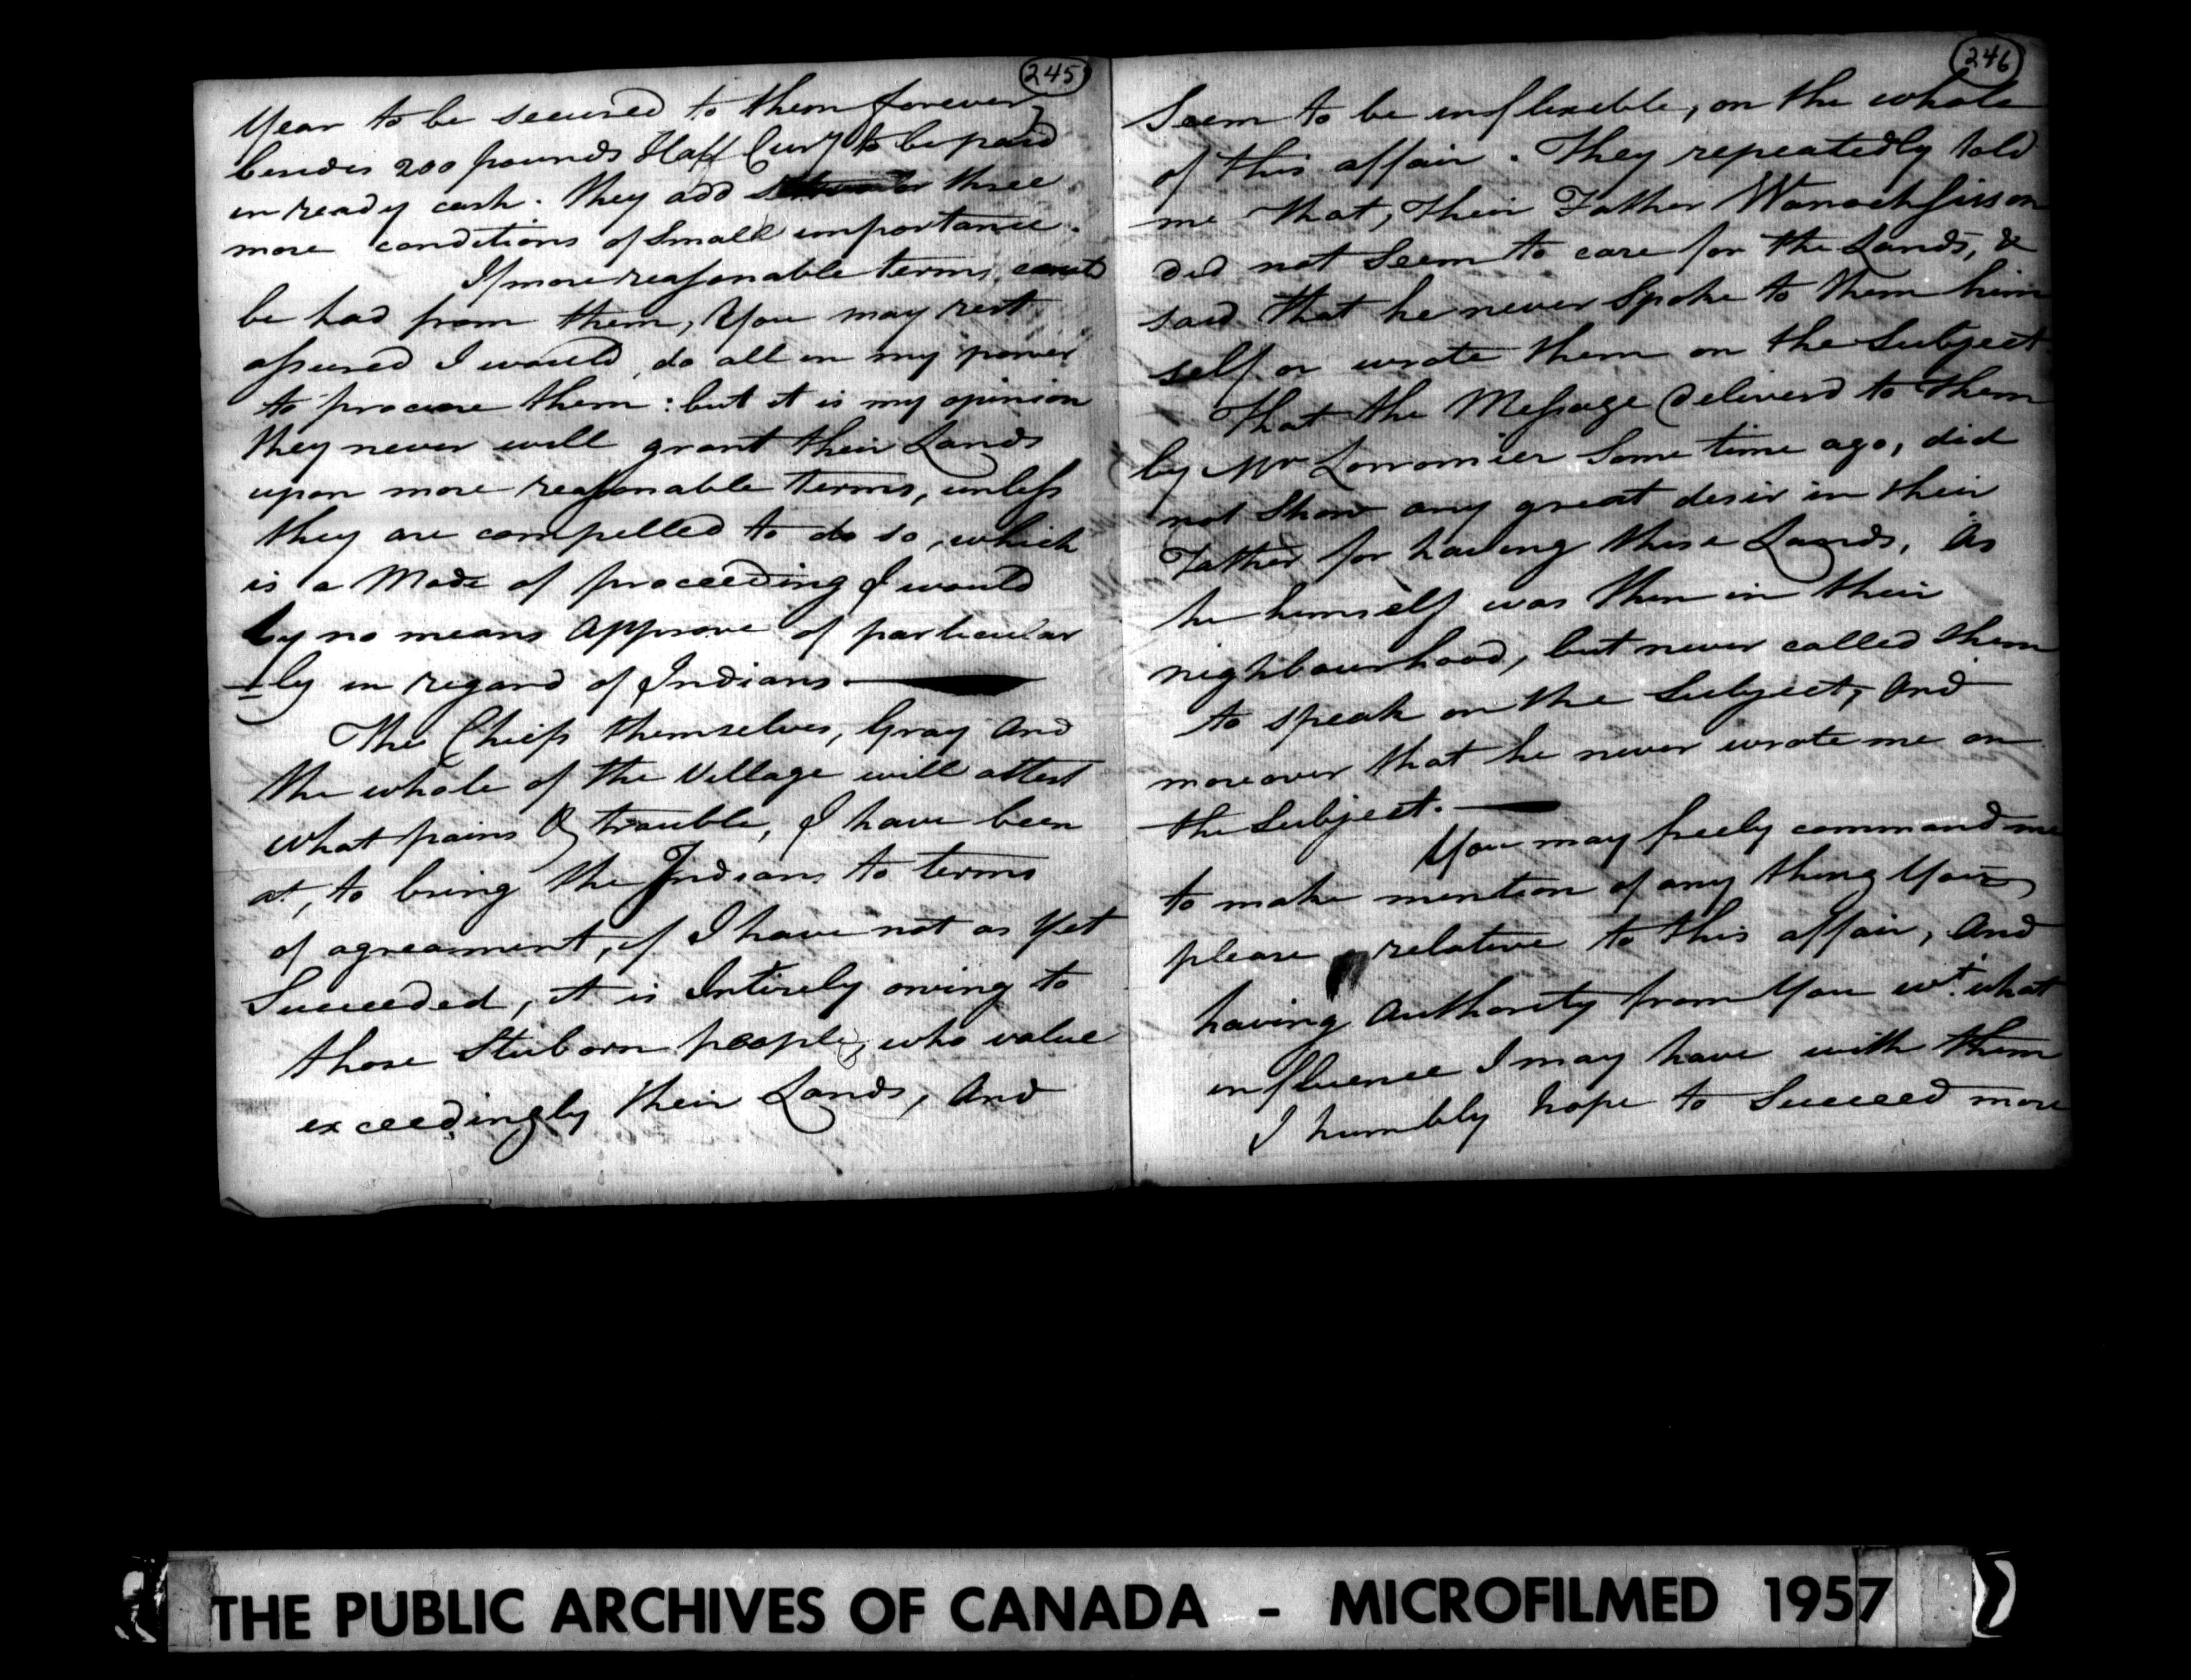 245
Year to be secured to them forever
besides 200 pounds Half Cury to be paid
in ready cash. they add three
more conditions of small importance.
If more reasonable terms, cou'd
be had from them, You may rest
assured I would, do all in my power
to procure them: but it is my opinion
they never will grant their Lands
upon more reasonable terms, unless
they are compelled to do so, which
is a Mode of proceeding I would
by no means Approve of particular
-ly in regard of Indians.
The Chiefs themselves, Gray And
the whole of the Village will attest
what pains & trouble, I have been
at, to bring the Indians to terms
of agreament, if I have not as Yet
Succeeded, it is Intirely owing to
those Stuborn people, who value
exceedingly their Lands, And
246
Seem to be inflexible, on the whole
of this affair. They repeatedly told
me that, their Father
did not Seem to care for the Lands, &
said that he never Spoke to them him
self or wrote them on the Subject.
That the Message deliverd to them
by Mr Lorromier Some time ago, did
not Show any great desir in their
Father for having these Lands, As
he himself was then in their
nighbourhood, but never called them
to speak on the Subject, And
moreover that he never wrote me on
the Subject.
You may freely command me
to make mention of any thing You
please relative to this affair, And
having Authority from You wt. what
influence I may have with them
I humbly hope to Succeed more
THE PUBLIC ARCHIVES OF CANADA - MICROFILMED 1957